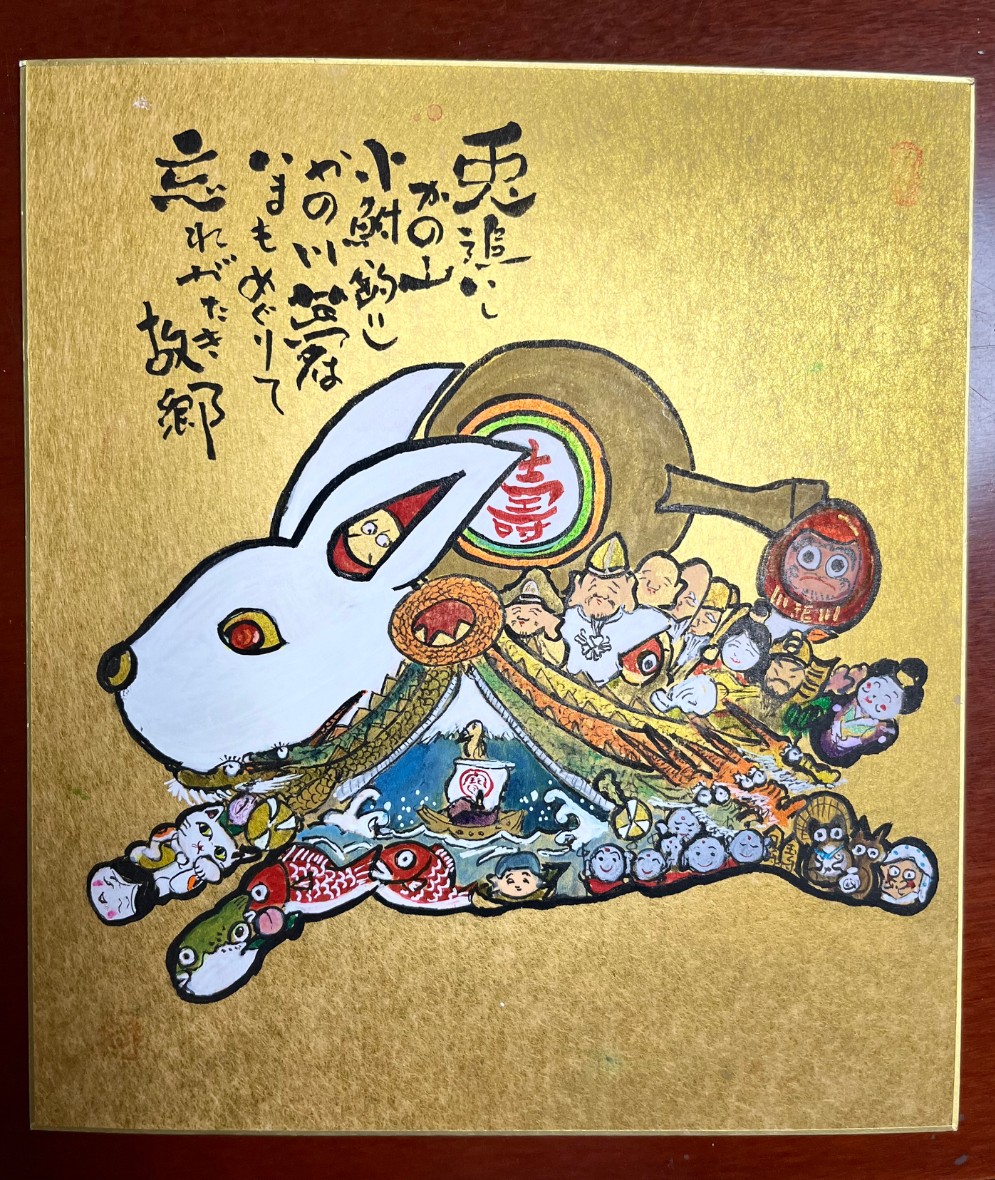 兎追いし
かの山
小鮒釣りし
かの川
夢は
いまもめぐりて
忘れがたき
故郷
壽